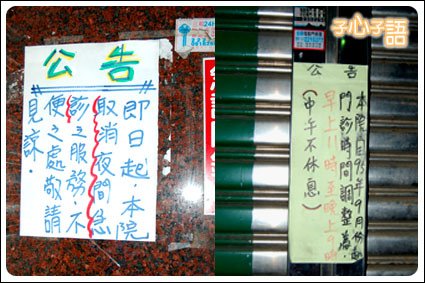 子心子語
公告
即日起，本院
取消夜間急
診之服務，不
便之處敬請
見諒。
公告
本院自95年9月份起
門診時間調整為：
早上11時至晚上9時
（中午不休息）